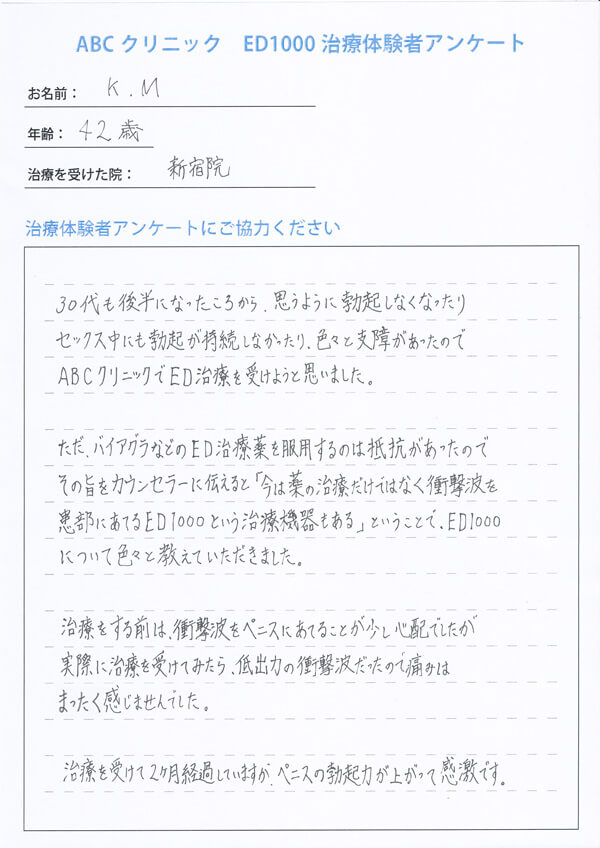 ABC クリニック　ED1000 治療体験者アンケート
お名前： K.M
年齢： 42歳
治療を受けた院： 新宿院
治療体験者アンケートにご協力ください
30代も後半になったころから、思うように勃起しなくなったり
セックス中にも勃起が持続しなかったり、色々と支障があったので
ABCクリニックでED治療を受けようと思いました。
ただ、バイアグラなどのED治療薬を服用するのは抵抗があったので
その旨をカウンセラーに伝えると「今は薬の治療だけではなく衝撃波を
患部にあてるED1000という治療機器もある」ということで、ED1000
について色々と教えていただきました。
治療をする前は、衝撃波をペニスにあてることが少し心配でしたが
実際に治療を受けてみたら、低出力の衝撃波だったので痛みは
まったく感じませんでした。
治療を受けて2ケ月経過していますが、ペニスの勃起力が上がって感激です。